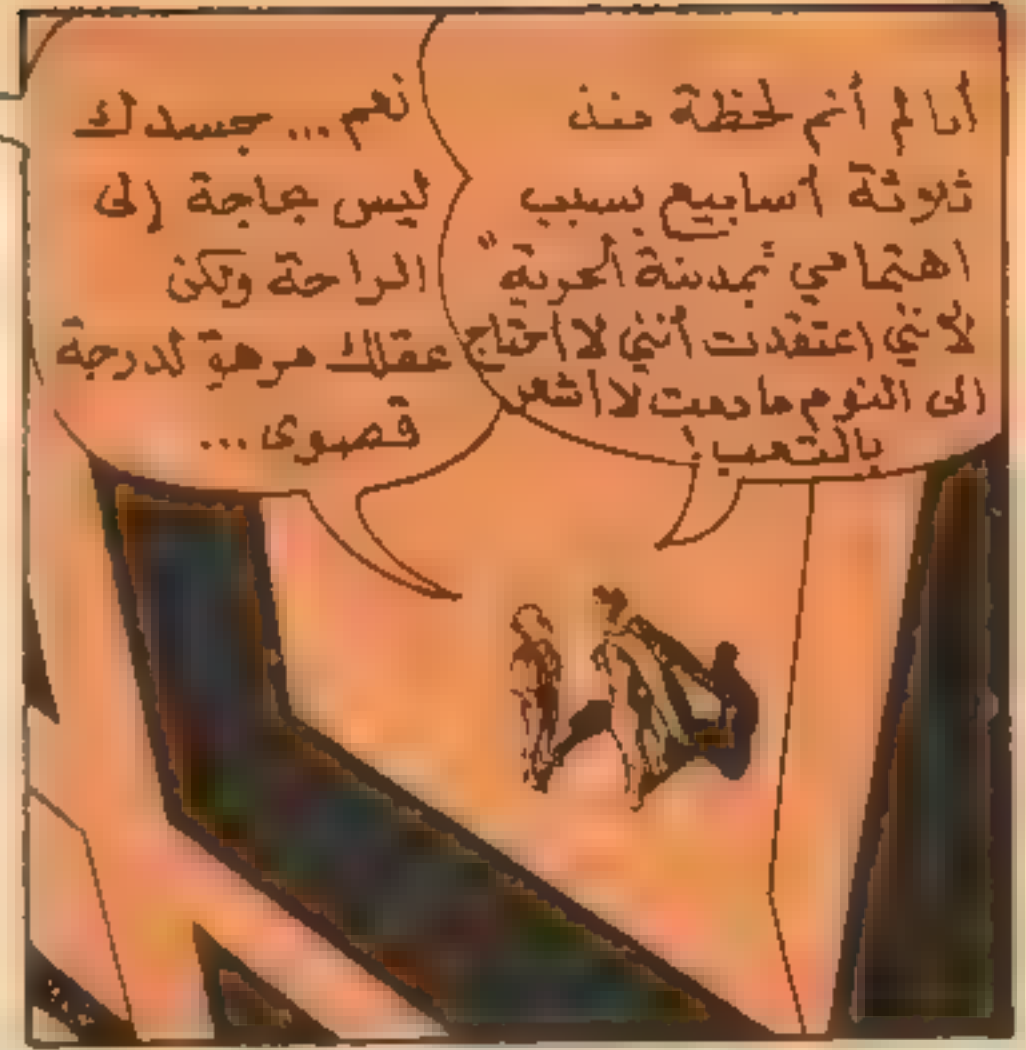 أنا لم أنم لحظة منذ
ثلاثة أسابيع بسبب
اهتمامي "بمدينة الحرية"
لأنني اعتقدت أنني لا أحتاج
إلى النوم مادمت لا أشعر
بالتعب!
نعم... جسدك
ليس بحاجة إلى
الراحة ولكن
عقلك مرهق لدرجة
قصوى...